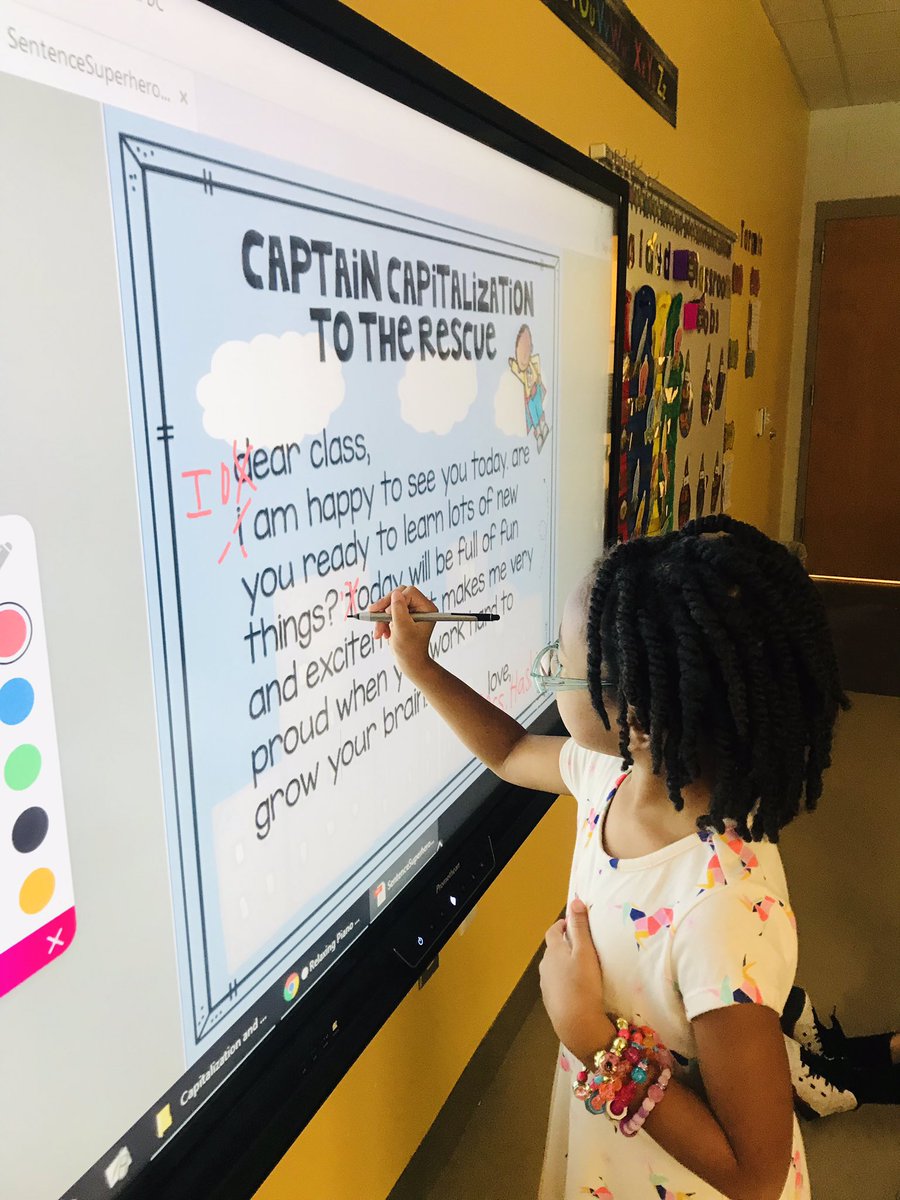 SentenceSuperhero... x
CAPTAIN CAPITALIZATION
TO THE RESCUE
I D
dear class,
i am happy to see you today. are
you ready to learn lots of new
things? today will be full of fun
and excitem makes me very
proud when y work hard to
grow your brain
love,
Classroom
Xx Yy Zz
Promethean
SentenceSuperhero...
Relaxing Piano ...
Capitalization and ...